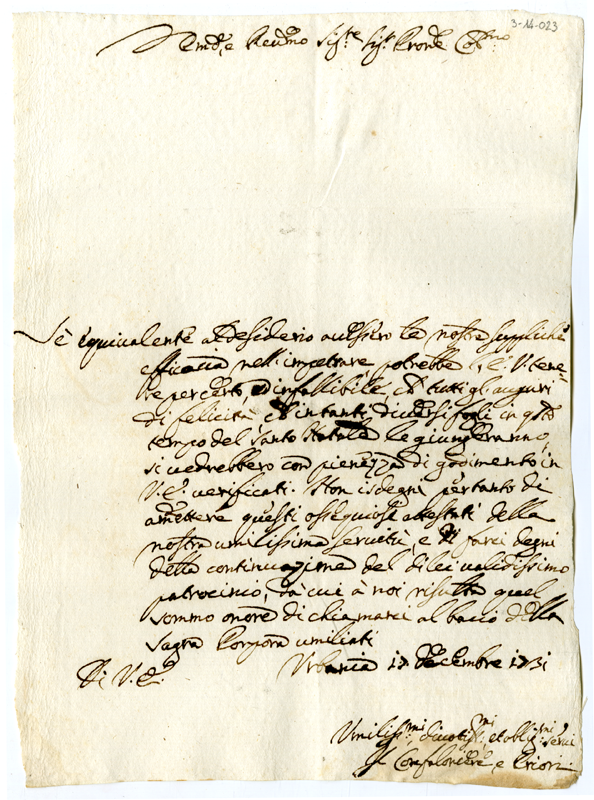 3-14-023
Em.o, e Reu.mo Sig.re Sig.r Pron.e Col.mo
Se equiualente al desiderio auessero le nostre suppliche
efficacia nell'impetrare, potrebbe l'E. V. tene-
re per certo, ed infallibile, che tutti gli auguri
di felicità, che in tanti diuersi fogli in q.sto
tempo del Santo Natale le giungeranno,
si uedrebbero con pienezza di godimento in
V. E. uerificati. Non isdegni pertanto di
amettere questi ossequiosi attestati della
nostra umilissima seruitù, e di farci degni
della continuazione del di lei ualidissimo
patrocinio, da cui à noi risulta quel
sommo onore di chiamarci al bacio della
Sagra Porpora umiliati
Di V. E. Vrbania 17 Decembre 1731
Vmiliss.mi diuotis.mi et oblig.mi Serui
Il Confaloniere, e Priori